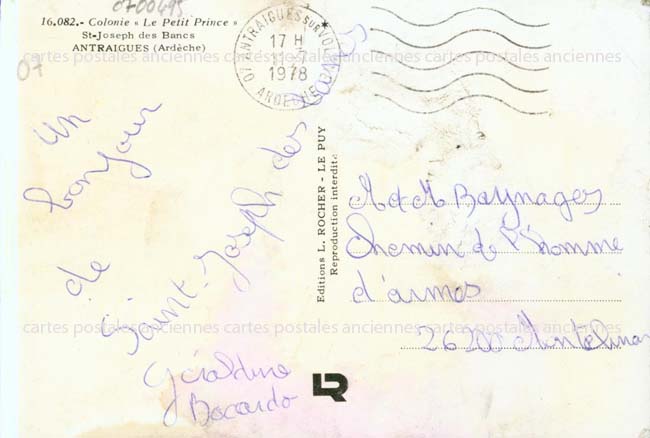 0700495
16.082.- Colonie « Le Petit Prince »
St-Joseph des Bancs
ANTRAIGUES (Ardèche)
07
07 ANTRAIGUES SUR VOLANE
17 H
1978
ARDECHE
cartes postales anciennes cartes postales anciennes cartes postales anciennes
un
bonjour
de
Saint-Joseph des Bancs
Géraldine
Bocardo
Editions L. ROCHER - LE PUY
Reproduction interdite
M et M
Chemin de l'homme
d'armes
26200 Montélimar
cartes postales anciennes cartes postales anciennes cartes postales anciennes
LR